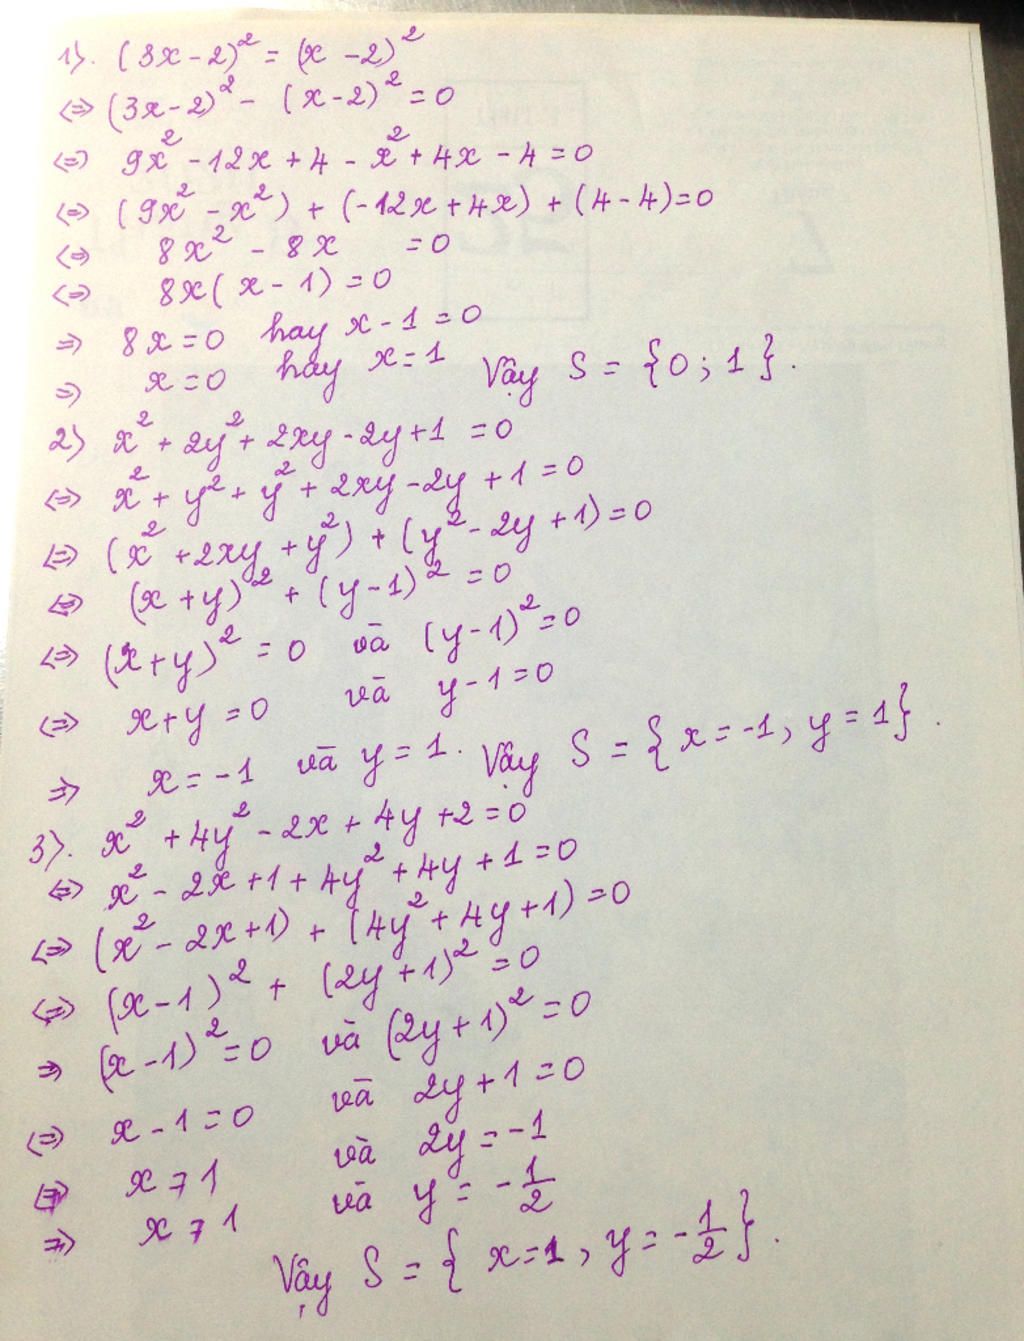 1). (3x-2)² = (x-2)²
<=> (3x-2)² - (x-2)² = 0
<=> 9x² - 12x + 4 - x² + 4x - 4 = 0
<=> (9x² - x²) + (-12x + 4x) + (4-4) = 0
<=> 8x² - 8x = 0
<=> 8x(x-1) = 0
=> 8x = 0 hay x-1 = 0
=> x = 0 hay x = 1 Vậy S = {0; 1}.
2) x² + 2y² + 2xy - 2y + 1 = 0
<=> x² + y² + y² + 2xy - 2y + 1 = 0
<=> (x² + 2xy + y²) + (y² - 2y + 1) = 0
<=> (x+y)² + (y-1)² = 0
<=> (x+y)² = 0 và (y-1)² = 0
<=> x+y = 0 và y-1 = 0
=> x = -1 và y = 1. Vậy S = {x = -1, y = 1}.
3). x² + 4y² - 2x + 4y + 2 = 0
<=> x² - 2x + 1 + 4y² + 4y + 1 = 0
<=> (x² - 2x + 1) + (4y² + 4y + 1) = 0
<=> (x-1)² + (2y+1)² = 0
=> (x-1)² = 0 và (2y+1)² = 0
<=> x-1 = 0 và 2y+1 = 0
<=> x = 1 và 2y = -1
=> x = 1 và y = -1/2
Vậy S = {x = 1, y = -1/2}.